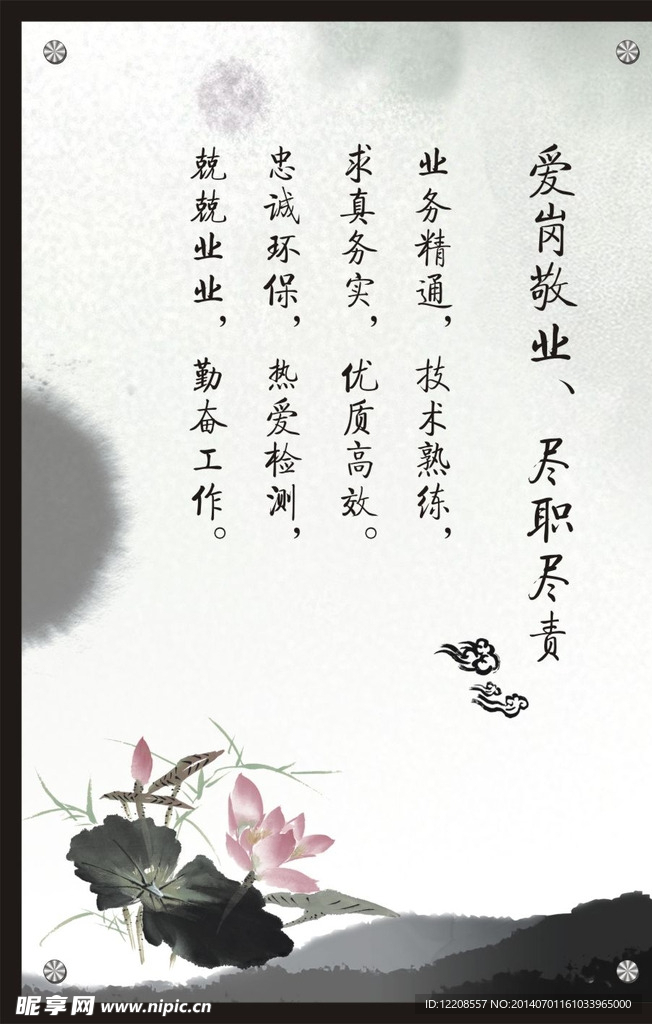 爱岗敬业、尽职尽责
业务精通，技术熟练，
求真务实，优质高效。
忠诚环保，热爱检测，
兢兢业业，勤奋工作。
昵享网 www.nipic.cn
ID:12208557 NO:20140701161033965000